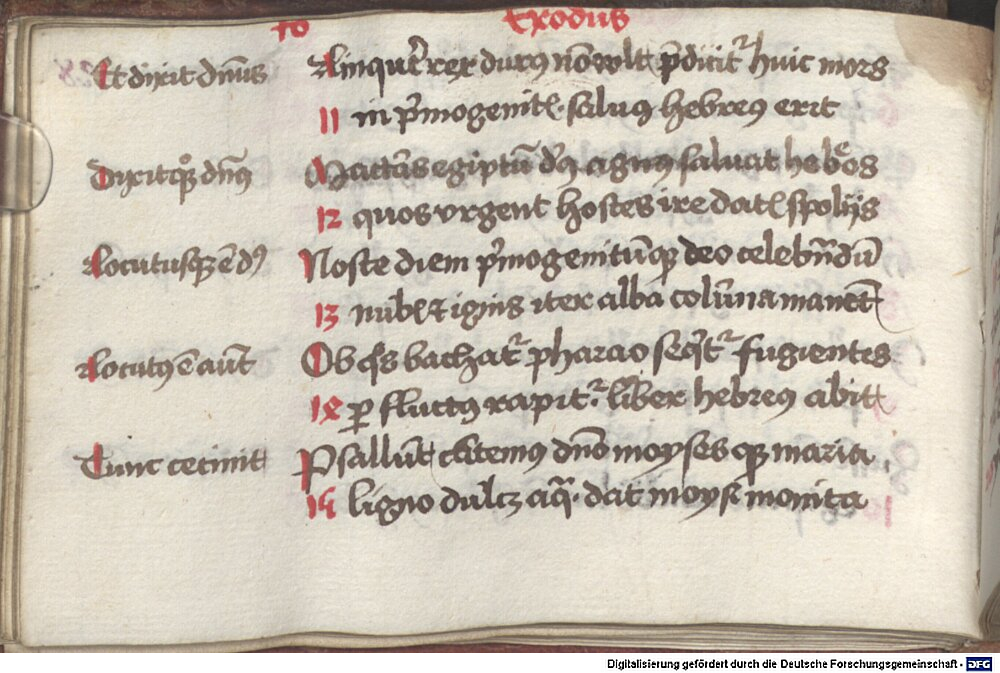 10 Exodus
Et dixit dn̄us Alinquēre rex durus nō wlt p̄dicitr huic mors
11 in p̄mogenitl. saluus hebreus erit
Dixitqꝫ dn̄s Mactās egiptū ds agnus saluat hebreos
12 quos vrgent hostes ire datl spolijs
Locutusqꝫ ē ds Noste diem p̄mogenitūqꝫ deo celebrādū
13 nubl et ignis iter alba colūna manet
Locutus ē aūt Ob qs bachatr pharao seqtr fugientes
14 ꝑ fluctus rapitr. liber hebreus abit
Tunc cecinit Psallūt clitemus dn̄o moyses qꝫ maria
15 ligno dulcꝫ aq̄. dat moysi monita
Digitalisierung gefördert durch die Deutsche Forschungsgemeinschaft - DFG